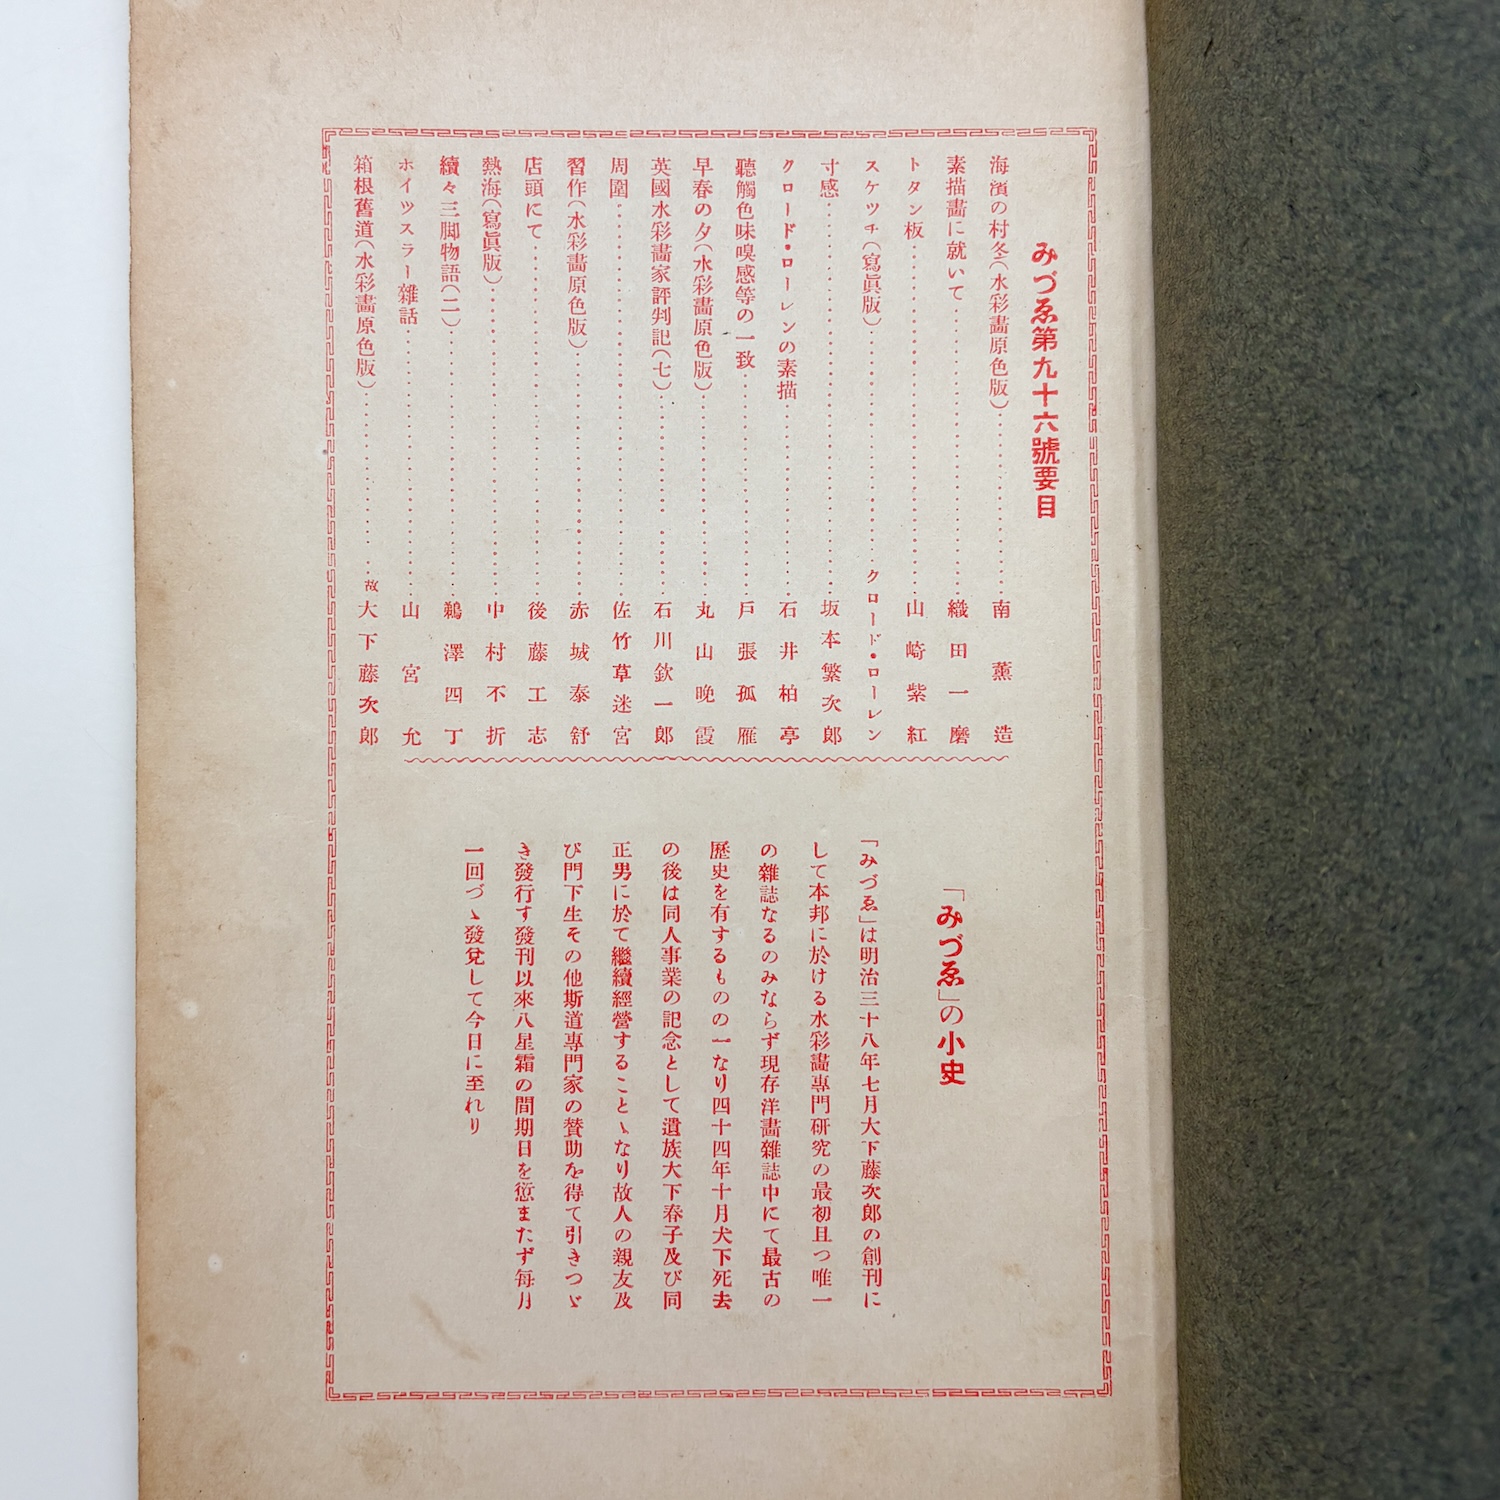 みづゑ第九十六號要目
海濱の村冬(水彩畵原色版)‥‥‥‥‥‥南薰造
素描畵に就いて‥‥‥‥‥‥織田一磨
トタン板‥‥‥‥‥‥山崎紫紅
スケツチ(寫眞版)‥‥‥‥‥‥クロード・ローレン
寸感‥‥‥‥‥‥坂本繁次郎
クロード・ローレンの素描‥‥‥‥‥‥石井柏亭
聽觸色味嗅感等の一致‥‥‥‥‥‥戸張孤雁
早春の夕(水彩畵原色版)‥‥‥‥‥‥丸山晩霞
英國水彩畵家評判記(七)‥‥‥‥‥‥石川欽一郎
周圍‥‥‥‥‥‥佐竹草迷宮
習作(水彩畵原色版)‥‥‥‥‥‥赤城泰舒
店頭にて‥‥‥‥‥‥後藤工志
熱海(寫眞版)‥‥‥‥‥‥中村不折
續々三脚物語(二)‥‥‥‥‥‥鵜澤四丁
ホイツスラー雜話‥‥‥‥‥‥山宮允
箱根舊道(水彩畵原色版)‥‥‥‥‥‥故大下藤次郎
「みづゑ」の小史
「みづゑ」は明治三十八年七月大下藤次郎の創刊に
して本邦に於ける水彩畵專門研究の最初且つ唯一
の雜誌なるのみならず現存洋畵雜誌中にて最古の
歷史を有するものの一なり四十四年十月大下死去
の後は同人事業の記念として遺族大下春子及び同
正男に於て繼續經營することゝなり故人の親友及
び門下生その他斯道專門家の賛助を得て引きつゞ
き發行す發刊以來八星霜の間期日を愆またず每月
一回づゝ發兌して今日に至れり